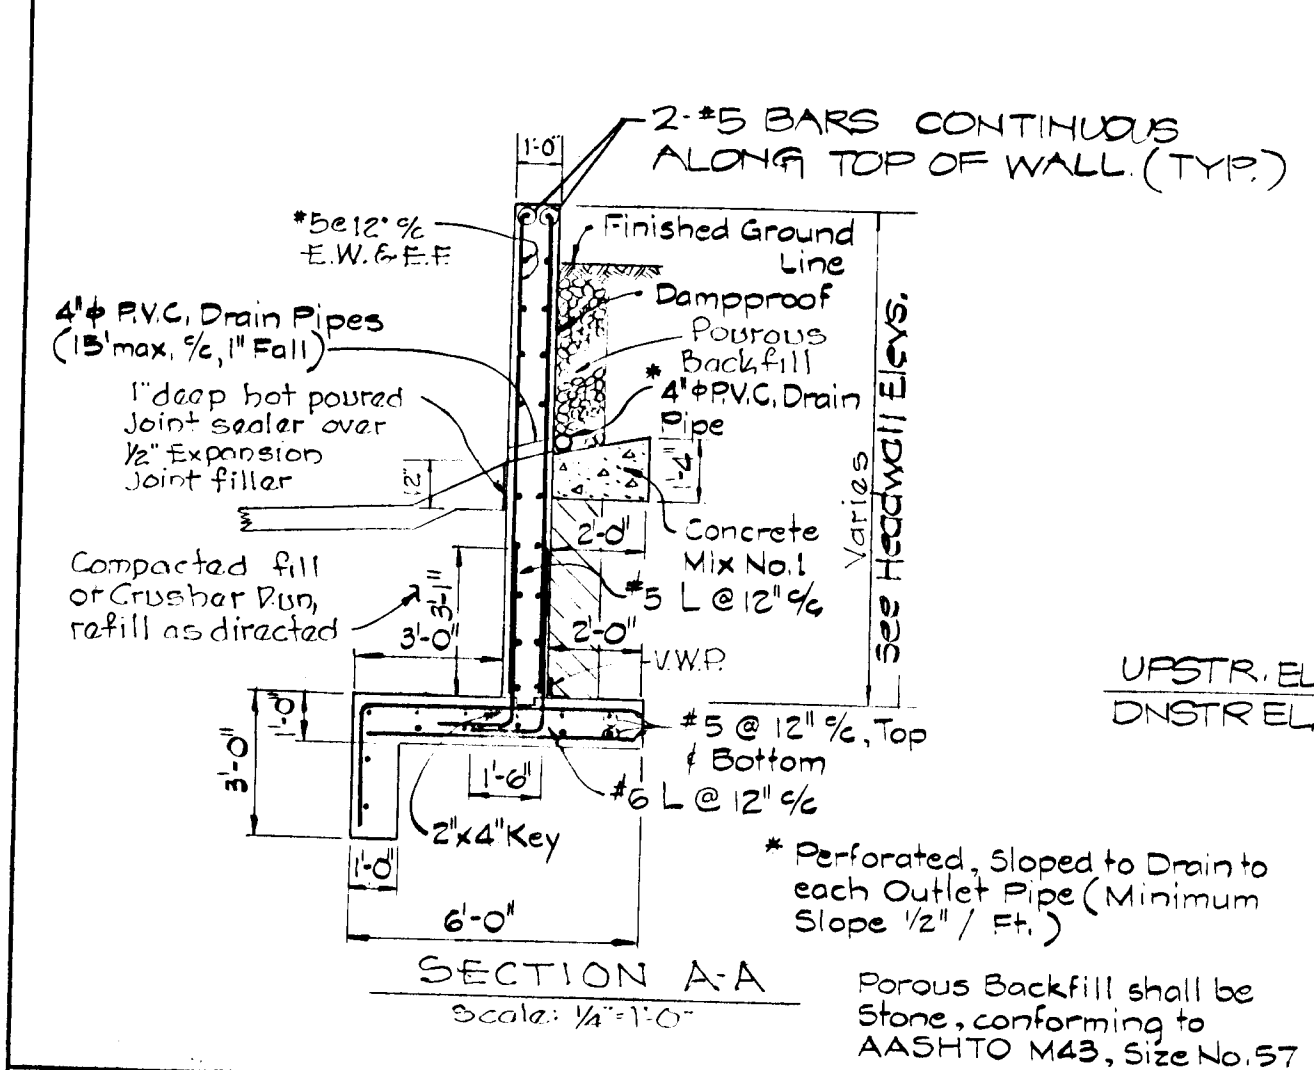 2-#5 BARS CONTINUOUS
ALONG TOP OF WALL. (TYP.)
1'-0"
#5@12" c/c
E.W. & E.F.
Finished Ground
Line
4"φ P.V.C. Drain Pipes
(15' max. c/c, 1" Fall)
Dampproof
Pourous
Backfill
* 4"φ P.V.C. Drain
Pipe
1" deep hot poured
Joint sealer over
1/2" Expansion
Joint filler
12"
1'-4"
Varies
See Headwall Elevs.
2'-0"
Concrete
Mix No. 1
#5 L @ 12" c/c
Compacted fill
or Crusher Run,
refill as directed
3'-1"
3'-0"
2'-0"
V.W.P.
UPSTR. EL
DNSTR EL.
1'-0"
3'-0"
#5 @ 12" c/c, Top
& Bottom
1'-6"
#6 L @ 12" c/c
2"x4" Key
1'-0"
6'-0"
* Perforated, Sloped to Drain to
each Outlet Pipe (Minimum
Slope 1/2" / Ft.)
SECTION A-A
Scale: 1/4"=1'-0"
Porous Backfill shall be
Stone, conforming to
AASHTO M43, Size No. 57